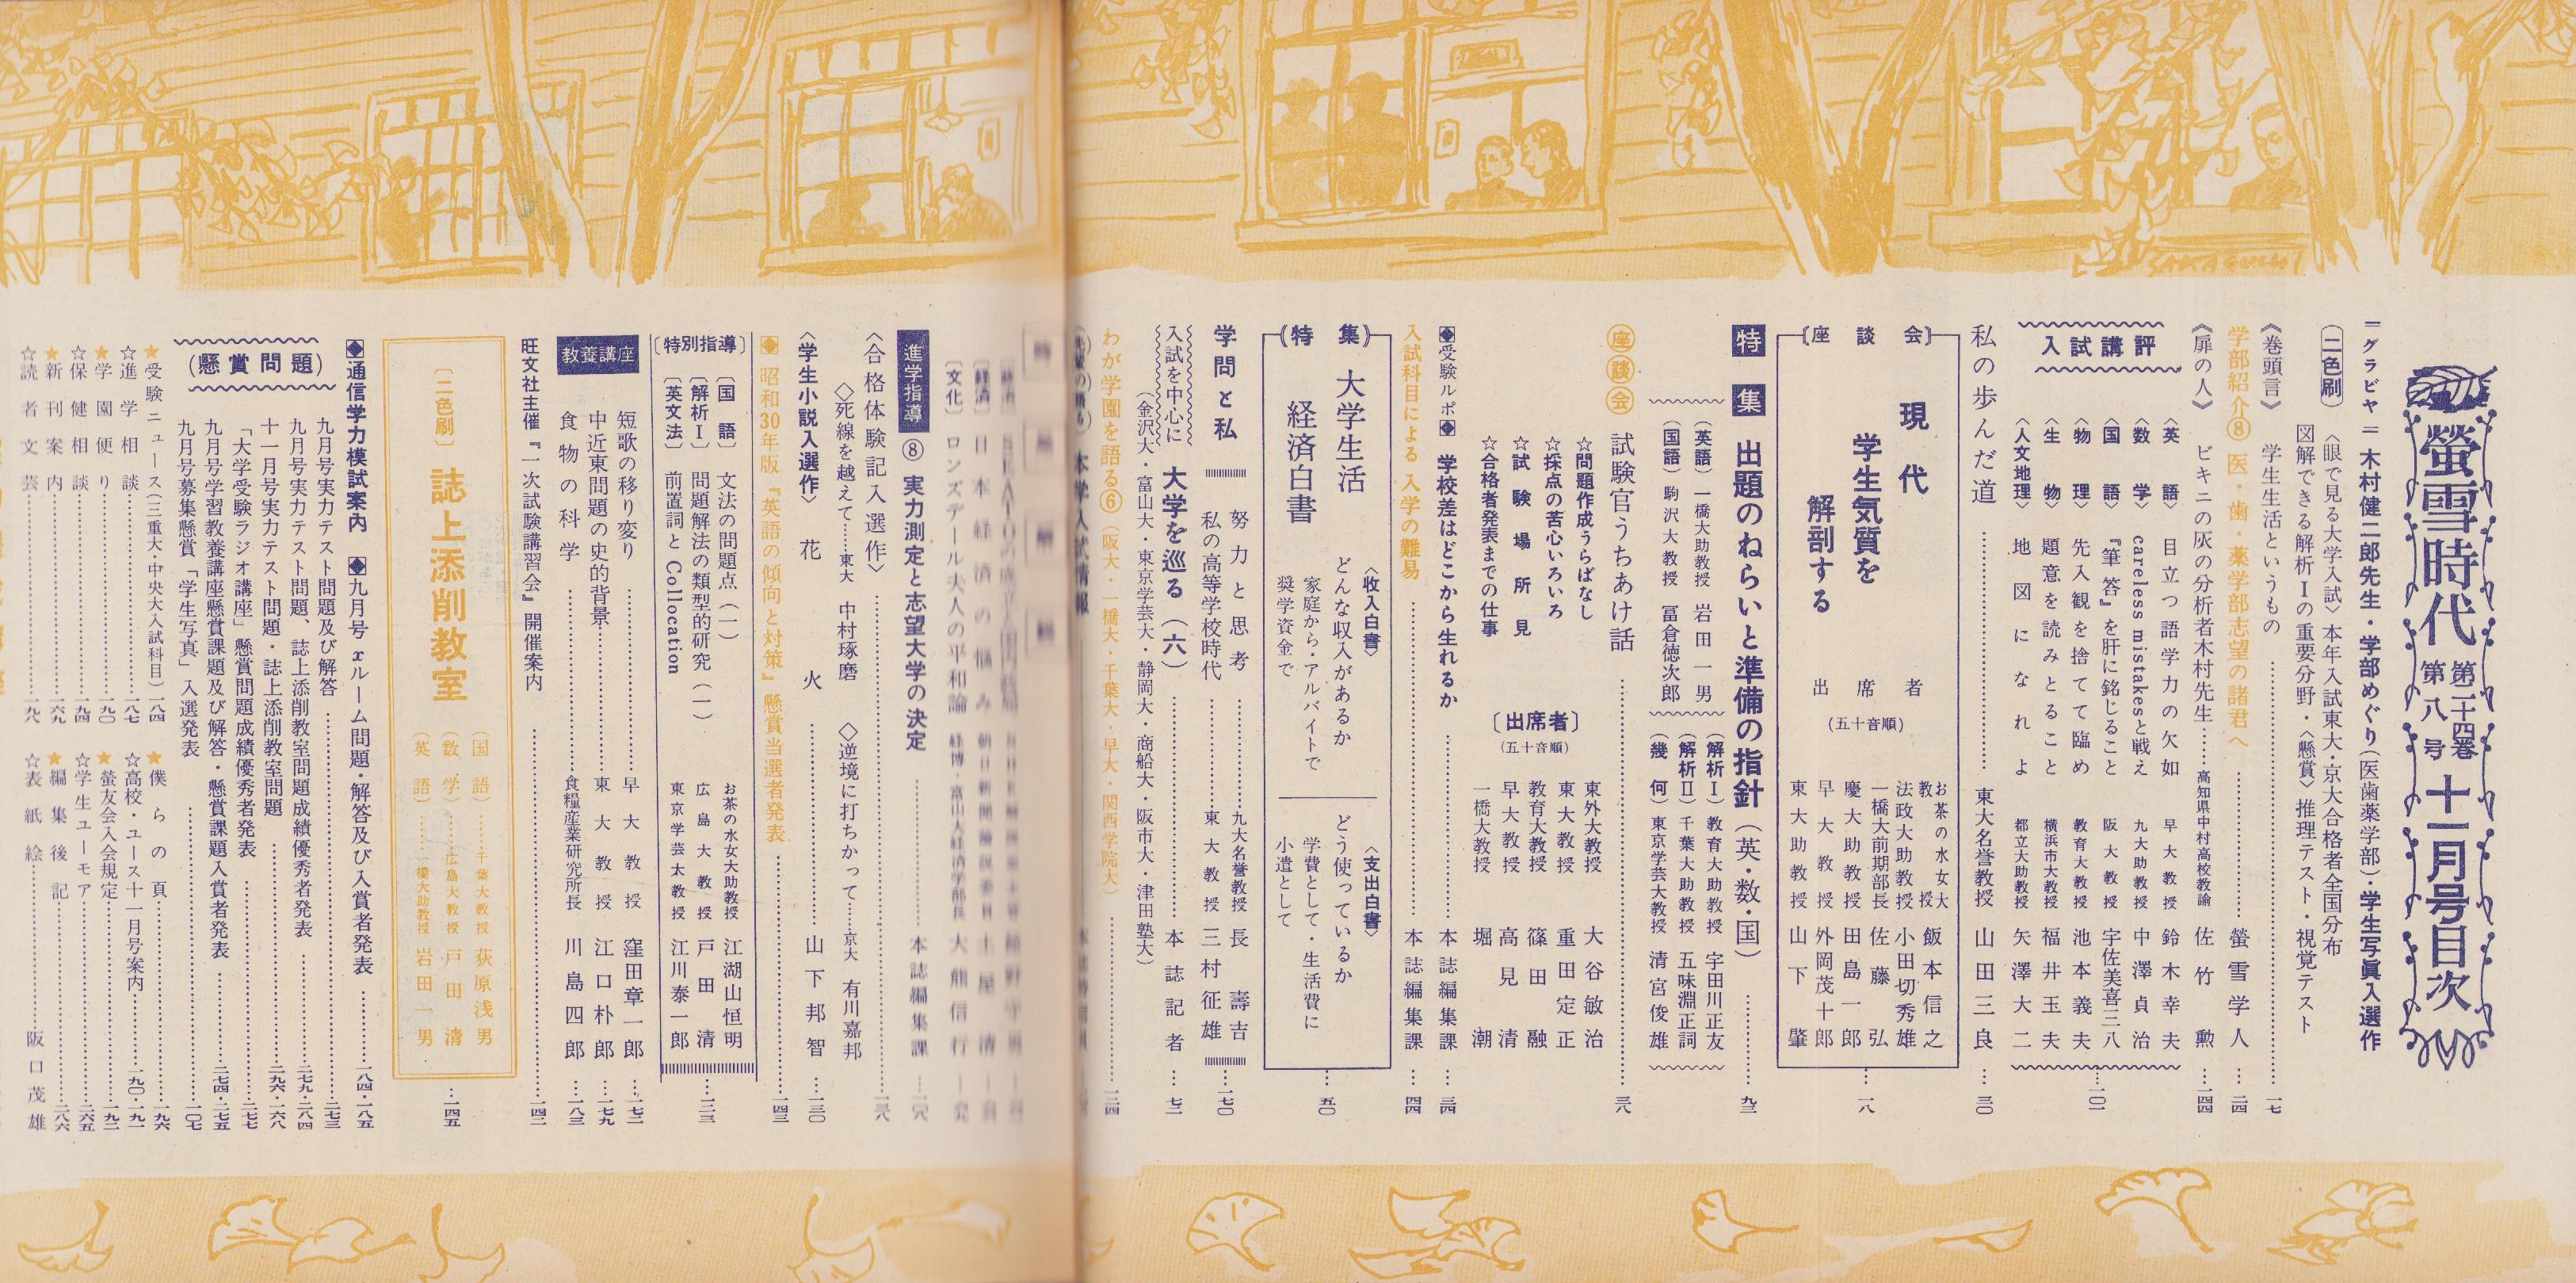 螢雪時代 第二十四巻 第八号 十一月号目次
=グラビヤ= 木村健二郎先生・学部めぐり(医歯薬学部)・学生写眞入選作
(二色刷) 〈眼で見る大学入試〉本年入試東大・京大合格者全国分布
図解できる解析Ⅰの重要分野・〈懸賞〉推理テスト・視覚テスト
《巻頭言》 学生生活というもの……一七
学部紹介⑧ 医・歯・薬学部志望の諸君へ……螢雪学人…二四
《扉の人》 ビキニの灰の分析者木村先生……高知県中村高校教諭 佐竹 勲…一四四
入試講評
〈英語〉 目立つ語学力の欠如 早大教授 鈴木幸夫
〈数学〉 careless mistakesと戦え 九大助教授 中澤貞治
〈国語〉 『筆答』を肝に銘じること 阪大教授 宇佐美喜三八
〈物理〉 先入観を捨てて臨め 教育大教授 池本義夫
〈生物〉 題意を読みとること 横浜市大教授 福井玉夫
〈人文地理〉 地図になれよ 都立大助教授 矢澤大二
…一〇一
私の歩んだ道……東大名誉教授 山田三良…三〇
〔座談会〕
現代
学生気質を
解剖する
出席者
(五十音順)
お茶の水女大教授 飯本信之
法政大助教授 小田切秀雄
一橋大前期部長 佐藤弘
慶大助教授 田島一郎
早大教授 外岡茂十郎
東大助教授 山下肇
…一八
特集 出題のねらいと準備の指針 (英・数・国)……九三
(英語) 一橋大助教授 岩田一男
(国語) 駒沢大教授 冨倉徳次郎
(解析Ⅰ) 教育大助教授 宇田川正友
(解析Ⅱ) 千葉大助教授 五味淵正詞
(幾何) 東京学芸大教授 清宮俊雄
座談会 試験官うちあけ話……三八
☆問題作成うらばなし
☆採点の苦心いろいろ
☆試験場所見
☆合格者発表までの仕事
〔出席者〕
(五十音順)
東外大教授 大谷敏治
東大教授 重田定正
教育大教授 篠田融
早大教授 高見清
一橋大教授 堀潮
◆受験ルポ◆ 学校差はどこから生れるか……本誌編集課…三四
入試科目による 入学の難易……本誌編集課…四四
〔特集〕
大学生活
経済白書
〈収入白書〉
どんな収入があるか
家庭から・アルバイトで
奨学資金で
〈支出白書〉
どう使っているか
学費として・生活費に
小遣として
…五〇
学問と私
努力と思考……九大名誉教授 長壽吉
私の高等学校時代……東大教授 三村征雄
…一七〇
入試を中心に 大学を巡る (六)……本誌記者…七二
(金沢大・富山大・東京学芸大・静岡大・商船大・阪市大・津田塾大)
わが学園を語る⑥ (阪大・一橋大・千葉大・早大・関西学院大)……一三四
本学入試情報
〔経済〕 日本経済の悩み 土屋清
〔文化〕 ロンズデール夫人の平和論 大熊信行
進学指導 ⑧ 実力測定と志望大学の決定……本誌編集課
〈合格体験記入選作〉……一三八
◇死線を越えて……東大 中村琢磨 ◇逆境に打ちかって……京大 有川嘉邦
〈学生小説入選作〉 花火……山下邦智…一三〇
◆昭和30年版『英語の傾向と対策』懸賞当選者発表……一四三
〔特別指導〕
〔国語〕 文法の問題点(一) お茶の水女大助教授 江湖山恒明
〔解析Ⅰ〕 問題解法の類型的研究(一) 広島大教授 戸田清
〔英文法〕 前置詞と Collocation 東京学芸大教授 江川泰一郎
…一二三
教養講座
短歌の移り変り……早大教授 窪田章一郎…一七二
中近東問題の史的背景……東大教授 江口朴郎…一七九
食物の科学……食糧産業研究所長 川島四郎…一八三
旺文社主催『一次試験講習会』開催案内……一四二
〔二色刷〕 誌上添削教室
(国語)……千葉大教授 荻原浅男
(数学)……広島大教授 戸田清
(英語)……一橋大助教授 岩田一男
…一四五
◆通信学力模試案内 ◆九月号xルーム問題・解答及び入賞者発表……一八四・一八五
(懸賞問題)
九月号実力テスト問題及び解答……二七三
九月号実力テスト問題、誌上添削教室問題成績優秀者発表……二七九・二八四
十一月号実力テスト問題・誌上添削教室問題……二九六・一六八
「大学受験ラジオ講座」懸賞問題成績優秀者発表……二七七
九月号学習教養講座懸賞課題及び解答・懸賞課題入賞者発表……二七四・二七五
九月号募集懸賞「学生写真」入選発表……一〇七
★受験ニュース(三重大・中央大入試科目)一八四
☆進学相談……一八七
★学園便り……一九〇
☆保健相談……一九四
★新刊案内……一六九
☆読者文芸……一九八
★僕らの頁……一九六
☆高校・ユース十一月号案内……一九〇・一九一
★螢友会入会規定……一九二
☆学生ユーモア……二六五
★編集後記……二八六
☆表紙絵……阪口茂雄
SAKAGUCHI